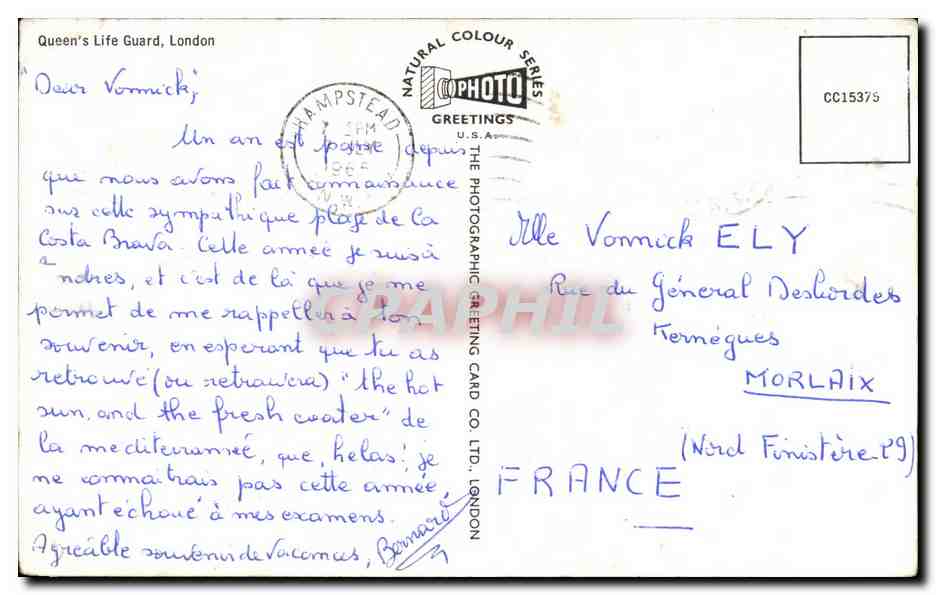 Queen's Life Guard, London
Dear Vonnick,
Un an est passé depuis
que nous avons fait connaissance
sur cette sympathique plage de la
Costa Brava. Cette année je suis à
Londres, et c'est de là que je me
permet de me rappeller à ton
souvenir, en esperant que tu as
retrouvé (ou retrouvera) "the hot
sun, and the fresh water" de
la mediterranneé, que, helas! je
ne connaitrais pas cette année,
ayant échoué à mes examens.
Agréable souvenir de vacances, Bernard
NATURAL COLOUR SERIES
PHOTO
GREETINGS
U.S.A.
HAMPSTEAD
PM
196
N.W.
THE PHOTOGRAPHIC GREETING CARD CO. LTD., LONDON
CC15375
Mlle Vonnick ELY
Rue du Général Desbordes
Kernégues
MORLAIX
(Nord Finistère 29)
FRANCE
CPAPHIL